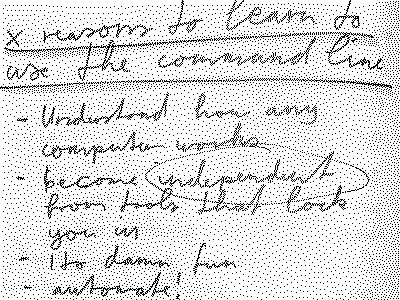 x reasons to learn to
use the command line
- Understand how any
computer works
- become independent
from tools that lock
you in
- Its damn fun
- automate!